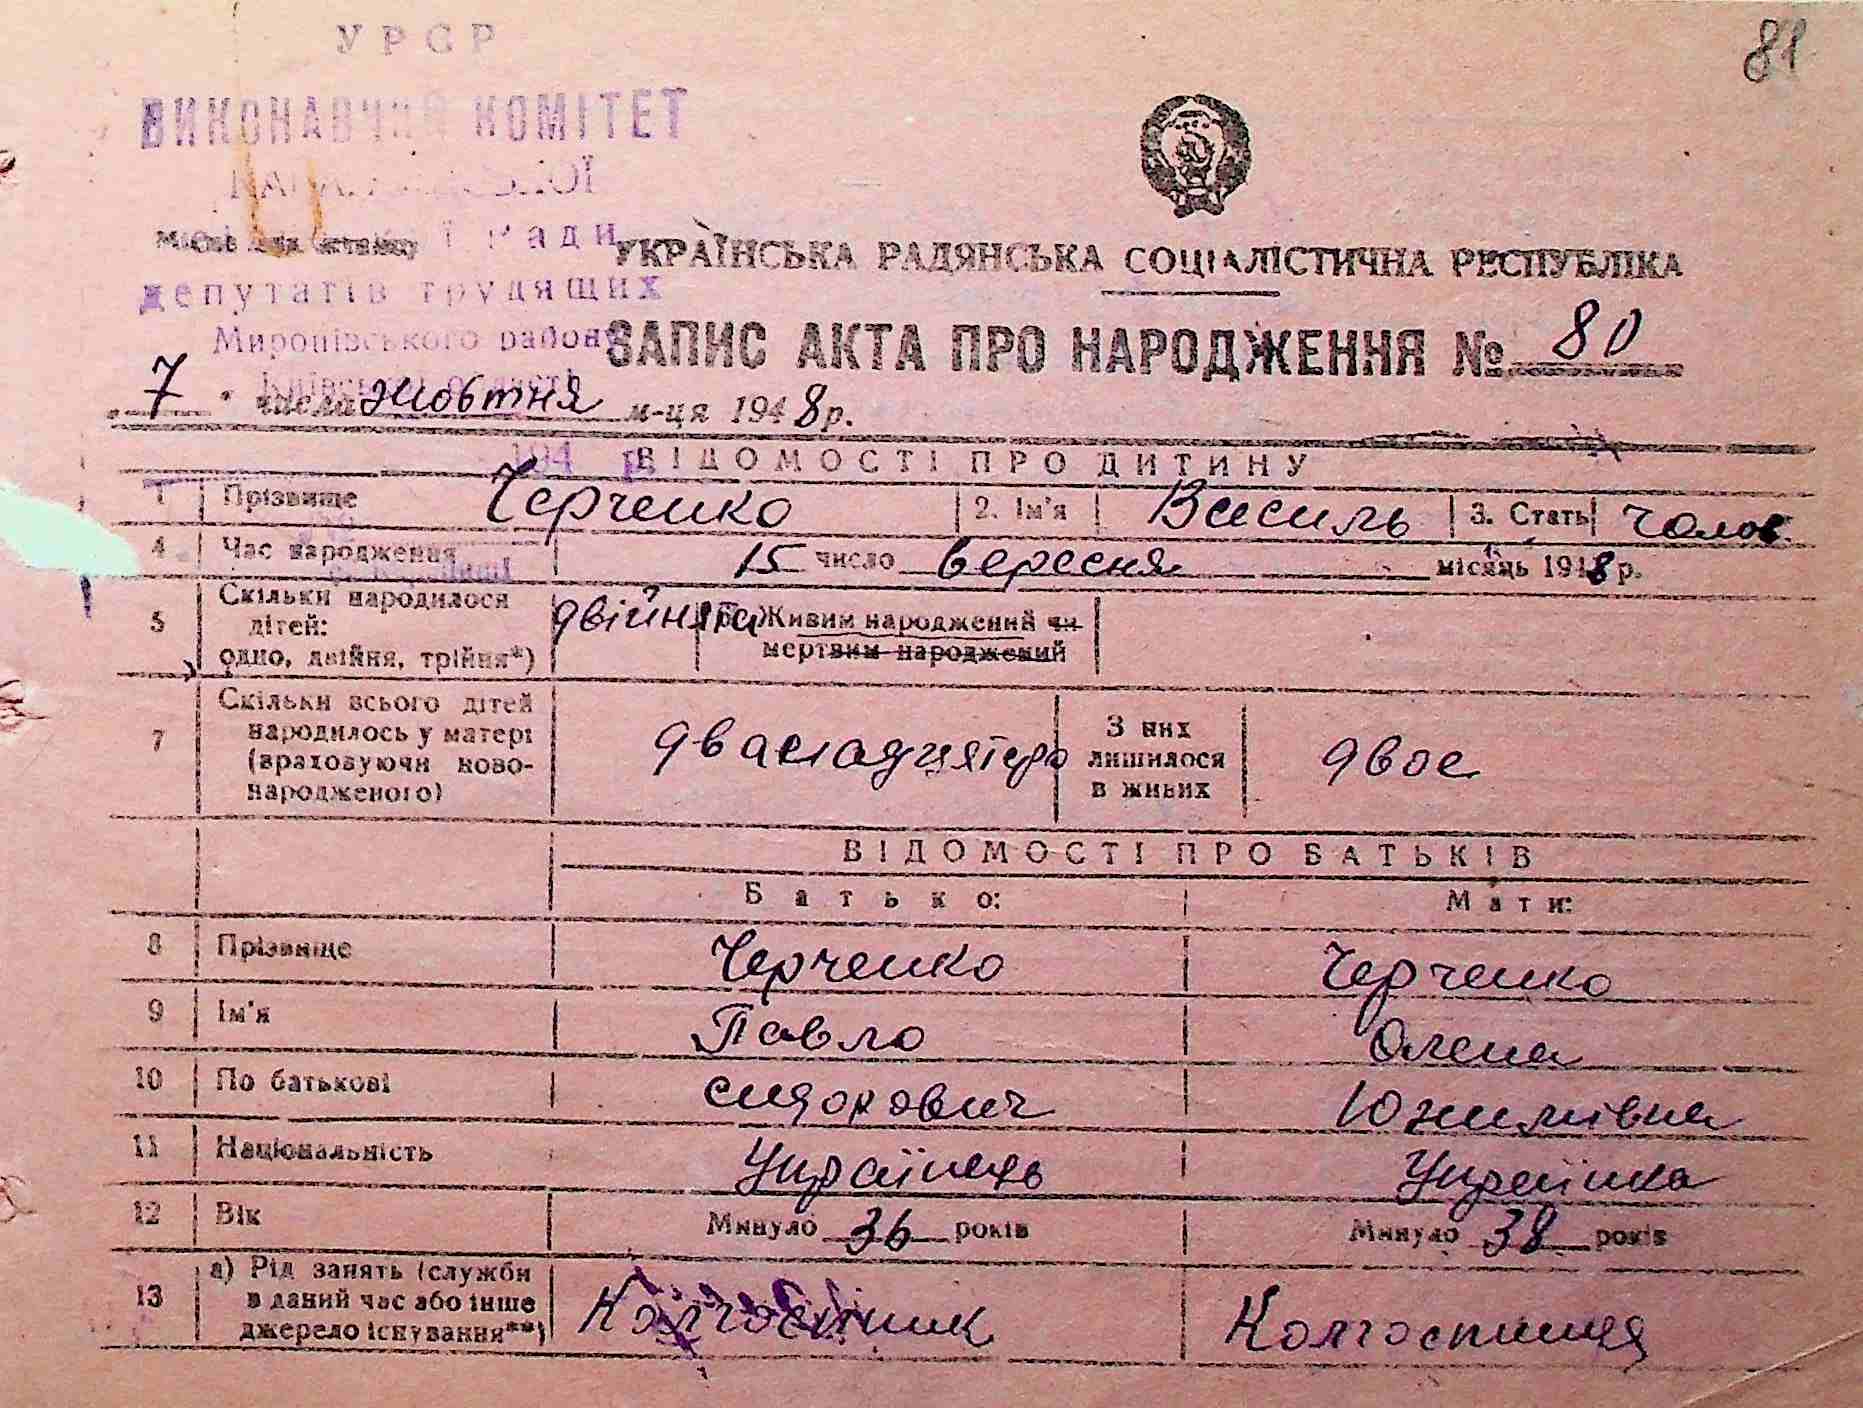 81
УРСР
ВИКОНАВЧИЙ КОМІТЕТ
Ради
депутатів трудящих
Миронівського району
Київської області
194 р.
УКРАЇНСЬКА РАДЯНСЬКА СОЦІАЛІСТИЧНА РЕСПУБЛІКА
ЗАПИС АКТА ПРО НАРОДЖЕННЯ № 80
7 числа жовтня м-ця 1948 р.
ВІДОМОСТІ ПРО ДИТИНУ
1 Прізвище Черченко 2. Ім'я Василь 3. Стать чолов.
4 Час народження 15 число вересня місяць 1948 р.
5 Скільки народилося дітей: одно, двійня, трійня*) двійнята 6. Живим народжений чи мертвим народжений
7 Скільки всього дітей народилось у матері (враховуючи ново-народженого) дванадцятеро З них лишилося в живих двое
ВІДОМОСТІ ПРО БАТЬКІВ
Батько: Мати:
8 Прізвище Черченко Черченко
9 Ім'я Павло Олена
10 По батькові Сидорович Юхимівна
11 Національність Українець Українка
12 Вік Минуло 36 років Минуло 38 років
13 а) Рід занять (служби в даний час або інше джерело існування**) Колгоспник Колгоспниця